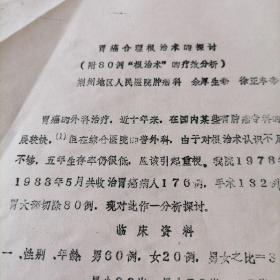 胃癌合理根治术的探讨
(附80例“根治术”的疗效分析)
荆州地区人民医院肿瘤科 余厚生 徐正
胃癌的外科治疗，近十年来，在国内某些胃肠
展较快，(1)但在综合医院的普外科，由于对根治术认识
不够，五年生存率仍很低，应该引起重视。我院1978
1983年5月共收治胃癌病人176例，手术132
胃大部切除80例，现对此作一分析探讨。
临床资料
一、性别、年龄：男60例，女20例，男女之比=3